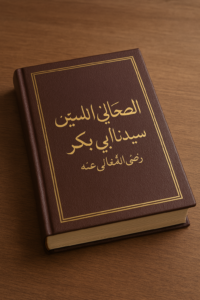 الصحاني اللسين
سيدنا ابي بكر
رضى المقالى عنه